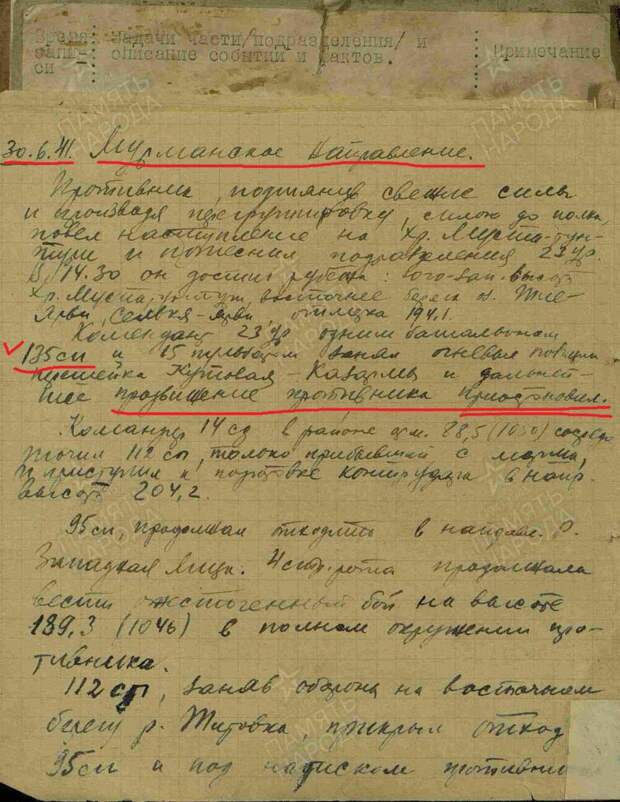 Время записи
Задачи части/подразделения/ и описание событий и фактов.
Примечание
30.6.41. Мурманское направление.
Противник, подтянув свежие силы
и производя перегруппировку, силою до полка,
повел наступление на Хр. Муста-тун-
тури и потеснил подразделения 23 ур.
В 14.30 он достиг рубежа: юго-зап. высоты
Хр. Муста-тунтури, восточнее берега
Ярви, 194.1.
Комендант 23 ур одним батальоном
135 сп и 15 пульбатом занял огневые позиции
перешейка Кутовая - Казармы и дальней-
шее продвижение противника приостановил.
Командир 14 сд в районе отм. 88,5 (1050) сосредо
точил 112 сп, только прибывший с марша,
и приступил к подготовке контрудара в напр.
высоты 204,2.
95 сп, продолжал отходить в направл. р.
Западная Лица. 4 стр. рота продолжала
вести ожесточенный бой на высоте
189,3 (1046) в полном окружении про-
тивника.
112 сп, заняв оборону на восточном
берегу р. Титовка, прикрыл отход
95 сп и под натиском противни
ПАМЯТЬ НАРОДА